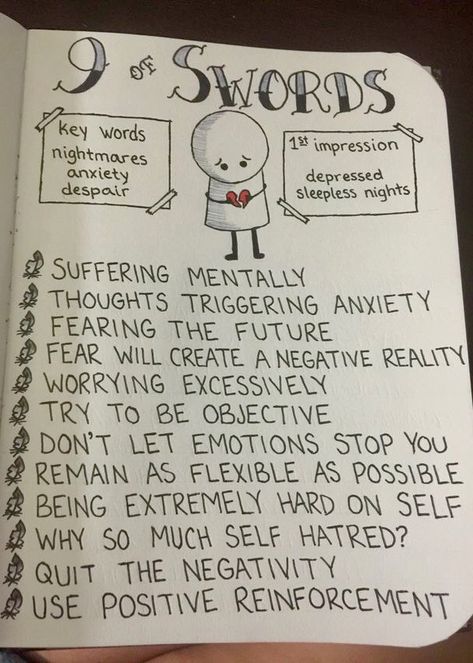 9 OF SWORDS
key words
nightmares
anxiety
despair
1st impression
depressed
sleepless nights
SUFFERING MENTALLY
THOUGHTS TRIGGERING ANXIETY
FEARING THE FUTURE
FEAR WILL CREATE A NEGATIVE REALITY
WORRYING EXCESSIVELY
TRY TO BE OBJECTIVE
DON'T LET EMOTIONS STOP YOU
REMAIN AS FLEXIBLE AS POSSIBLE
BEING EXTREMELY HARD ON SELF
WHY SO MUCH SELF HATRED?
QUIT THE NEGATIVITY
USE POSITIVE REINFORCEMENT